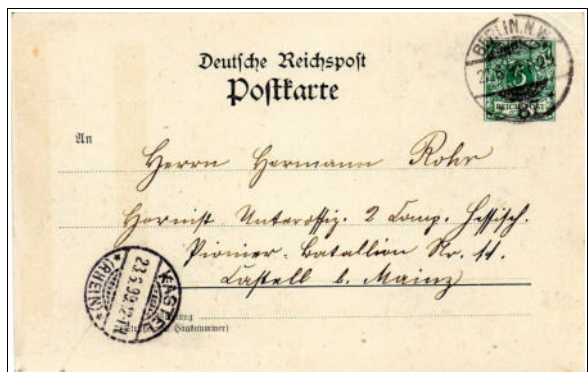 Deutsche Reichspost
Postkarte
BERLIN, N.W.
5
REICHSPOST
An
Herrn Hermann Rohr
Hornist Unteroffiz. 2 Comp. Hessisch.
Pionier-Batallion Nr. 11.
Castell b. Mainz
KASTEL
23.6.99. 12-1N
*(RHEIN)*
Hausnummer)